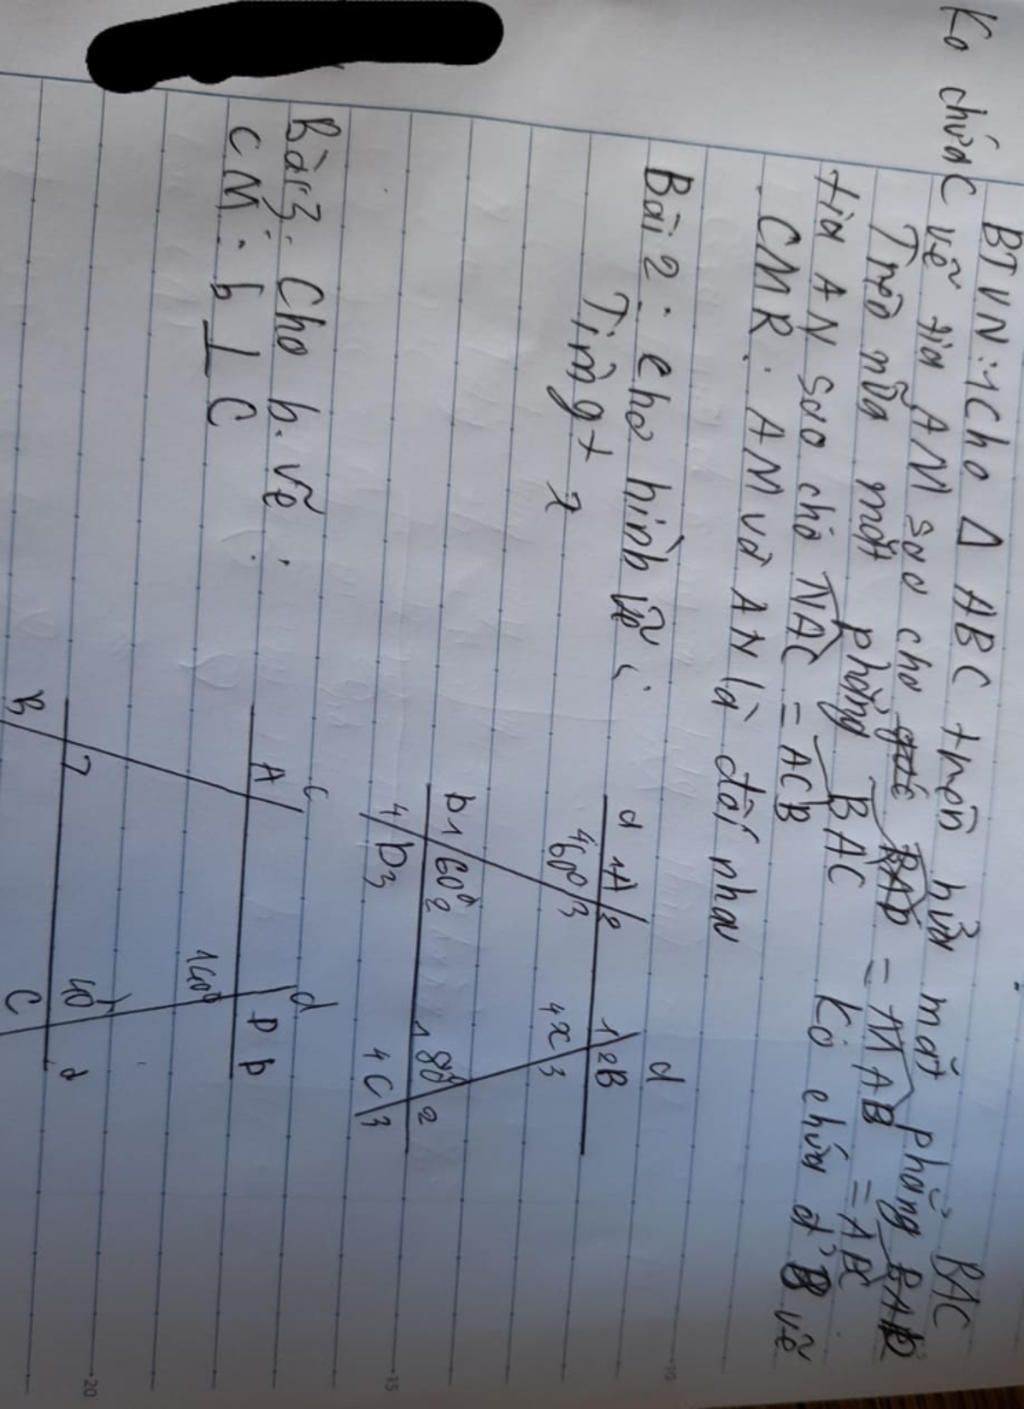 Ko chứa C
BTVN: 1 Cho Δ ABC trên nửa mặt phẳng BAC
vẽ tia AM sao cho = MAB = ABC
Trên nửa mặt phẳng BAC ko chứa đ' B vẽ
tia AN sao cho NAC = ACB
CMR. AM và AN là đối nhau
Bài 2: Cho hình vẽ:
Tính
d A 1 2
4 60° 3
d
1 2 B
4 x 3
b 1 60° 2
4 D 3
1 80° 2
4 C 3
Bài 3. Cho h.vẽ.
CM: b ⊥ C
c
A
d
D b
140°
B
40°
C